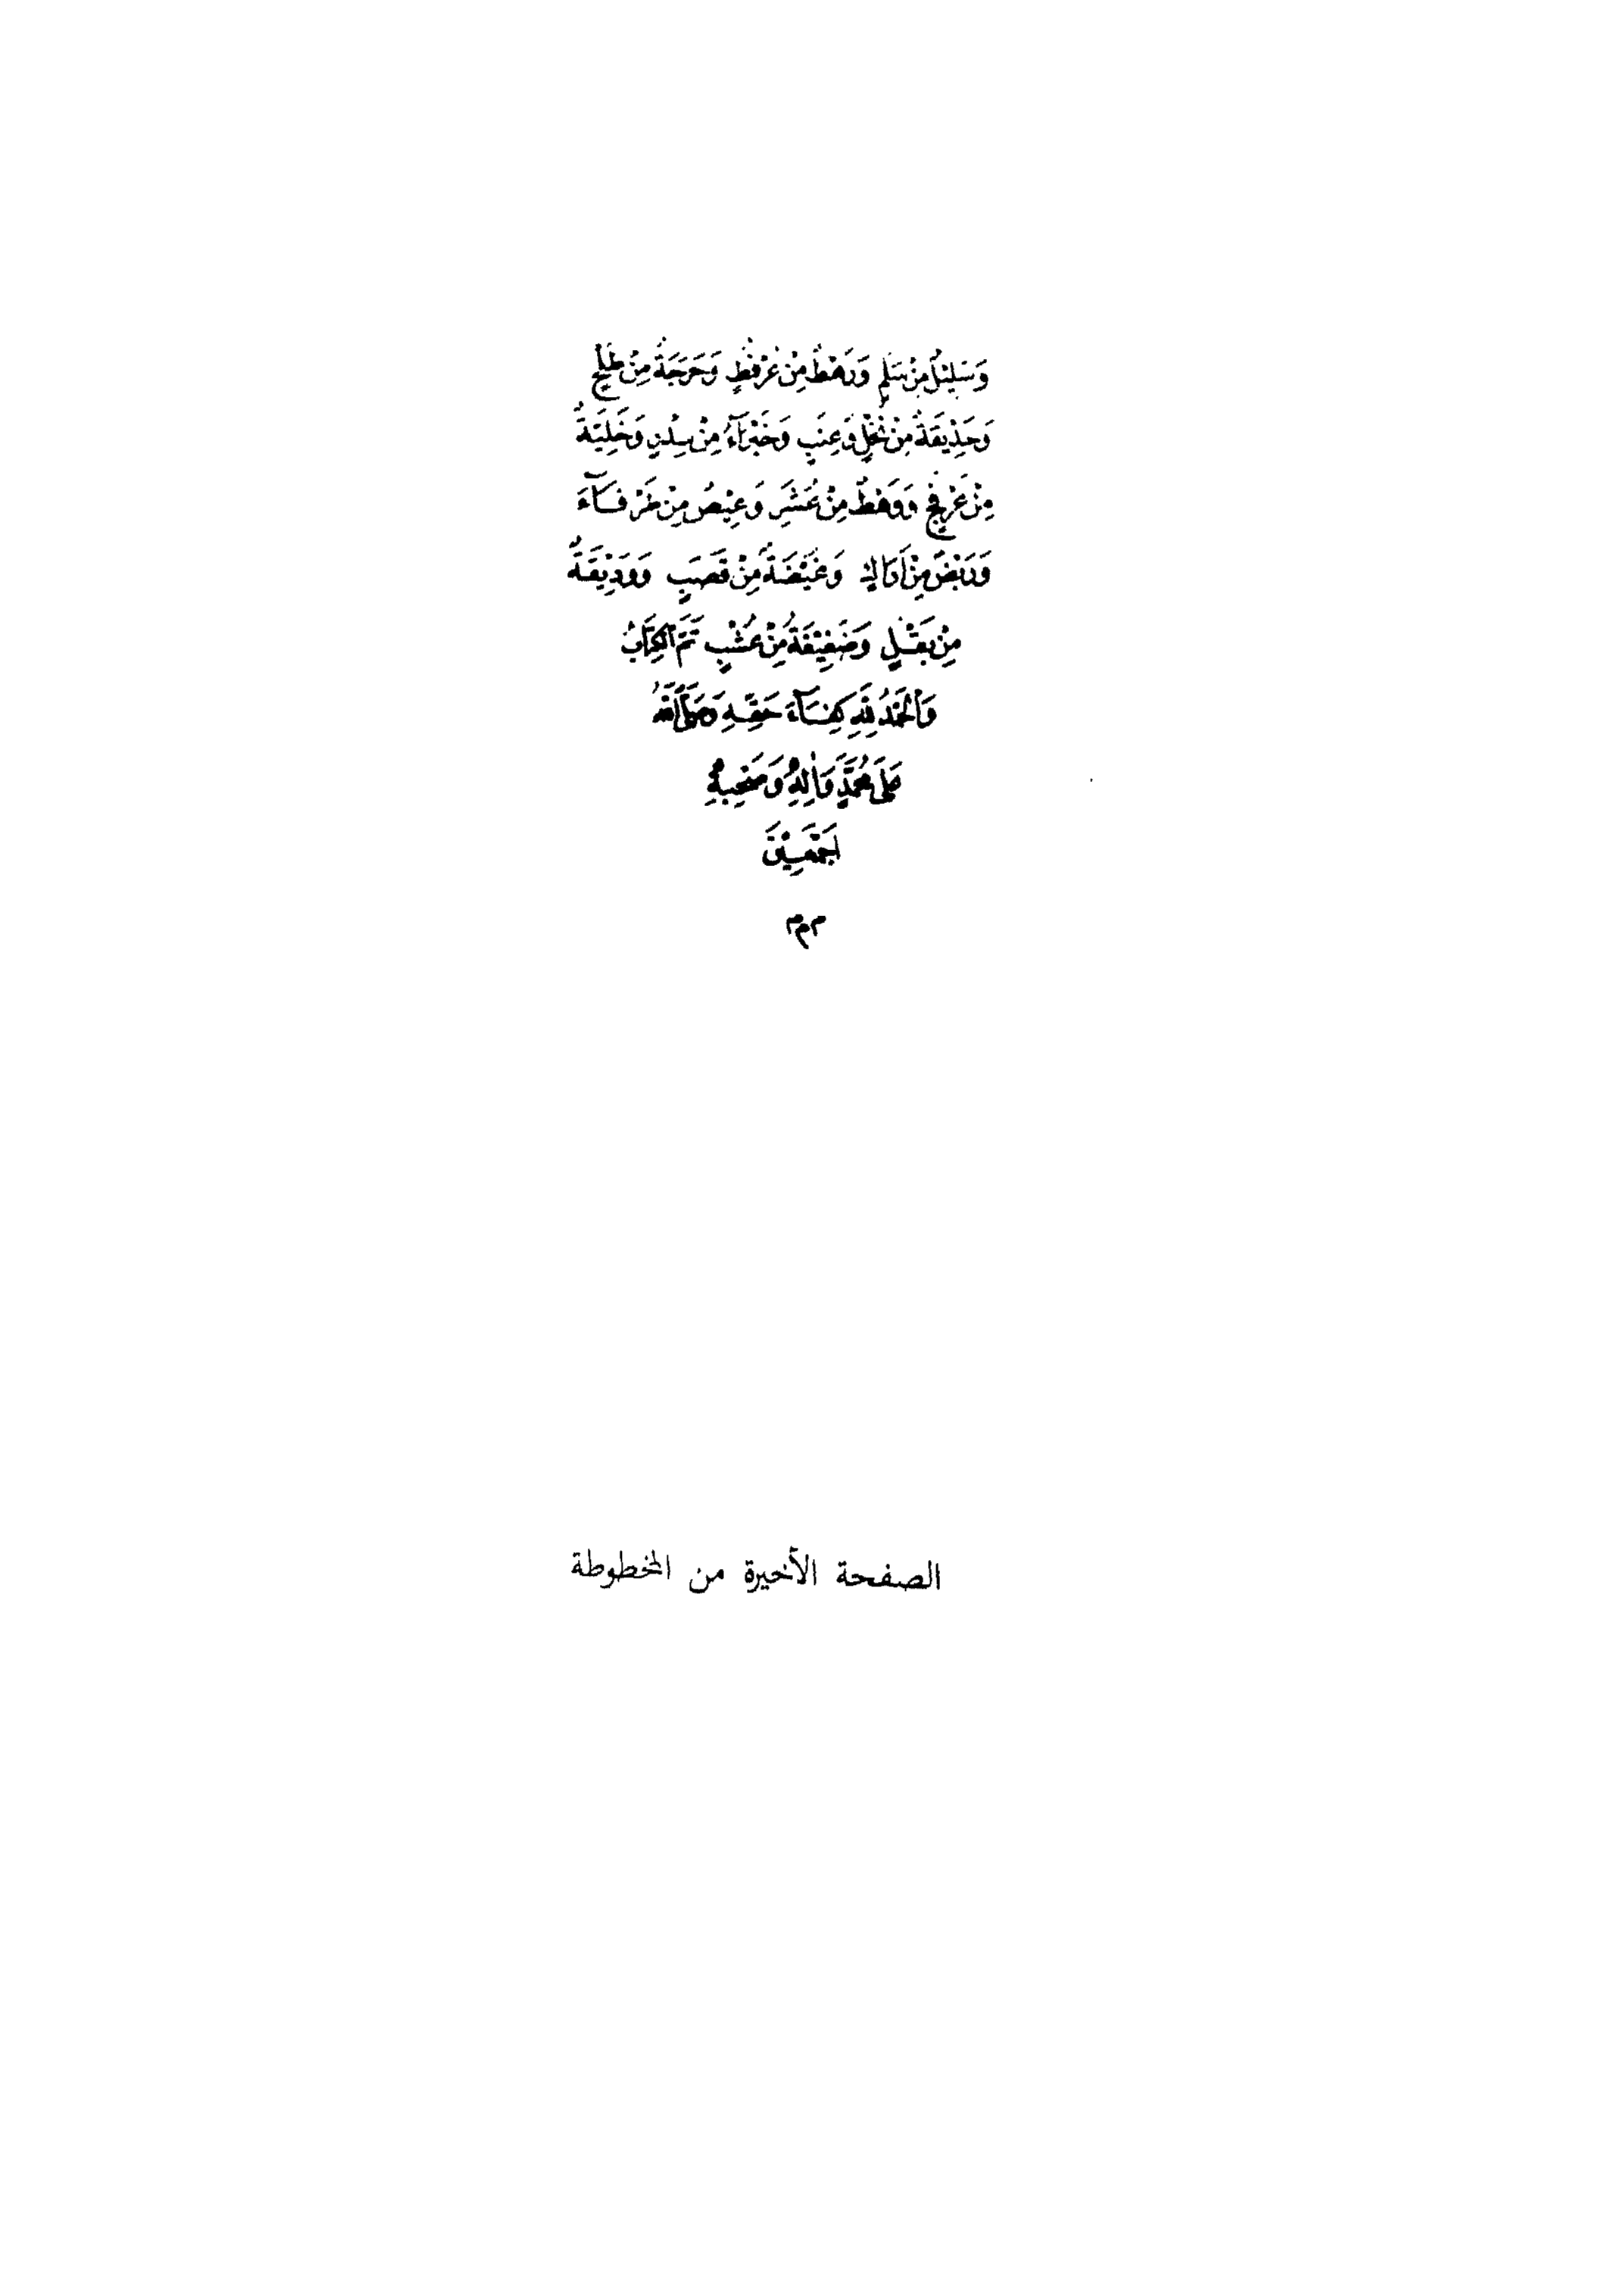 وَسَلِيْلٌ مِنْ سَلَمٍ وَرَهْطٌ مِنْ عُرْفُطٍ وَحَرَجَةٌ مِنْ طَلْحٍ
وَحَدِيْقَةٌ مِنْ نَخْلٍ وَعِنَبٍ وَخَبْرَآءُ مِنْ سِدْرٍ وَخَلِيَّةٌ
مِنْ عَرْفَجٍ وَوَهْطٌ مِنْ عُشَرٍ وَعِيْصٌ مِنْ طَرْفَآءَ
وَرَبْضٌ مِنْ اَرَاكٍ وَغَيْضَةٌ مِنْ قَصَبٍ وَوَدِيْقَةٌ
مِنْ بَقْلٍ وَضَغِيْفَةٌ مِنْ عُشْبٍ تَمَّ الْكِتَابُ
وَالْحَمْدُ لِلّٰهِ كِفَآءَ حَقِّهِ وَصَلَّى اللّٰهُ
عَلَى مُحَمَّدٍ وَاٰلِهِ وَصَحْبِهِ
اَجْمَعِيْنَ
م م م
الصفحة الأخيرة من المخطوطة